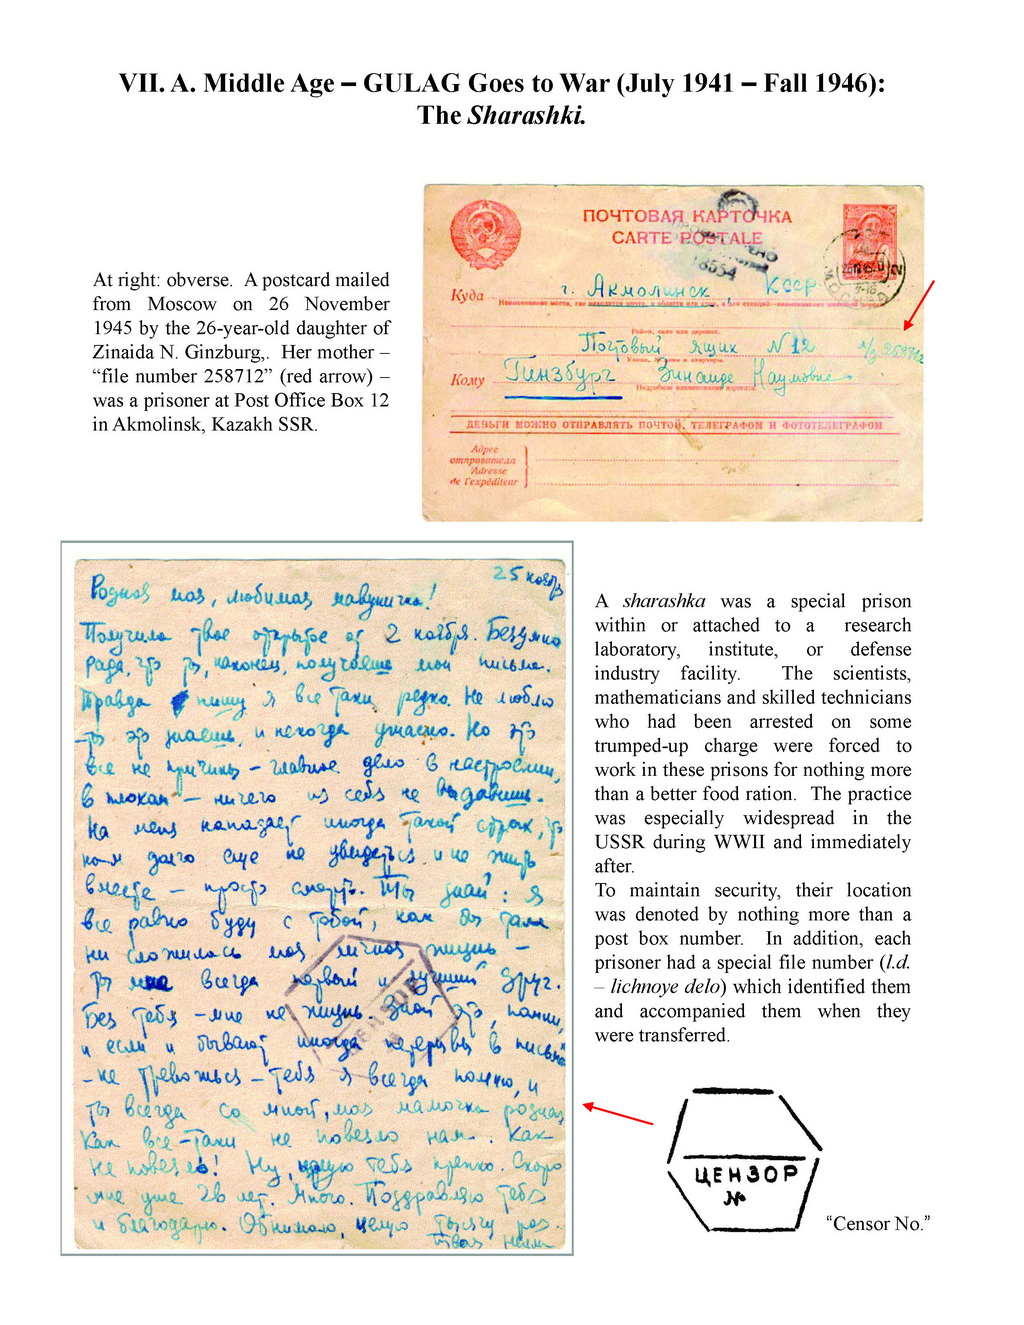 VII. A. Middle Age – GULAG Goes to War (July 1941 – Fall 1946):
The Sharashki.
At right: obverse. A postcard mailed
from Moscow on 26 November
1945 by the 26-year-old daughter of
Zinaida N. Ginzburg,. Her mother –
“file number 258712” (red arrow) –
was a prisoner at Post Office Box 12
in Akmolinsk, Kazakh SSR.
ПОЧТОВАЯ КАРТОЧКА
CARTE POSTALE
18554
Куда г. Акмолинск, КССР
Наименование места, где находится почта, и области или края, а для станций
Район, село или деревня.
Почтовый ящик N 12 л/д 258712
Кому Гинзбург Зинаиде Наумовне
Подробное наименование адресата
ДЕНЬГИ МОЖНО ОТПРАВЛЯТЬ ПОЧТОЙ, ТЕЛЕГРАФОМ И ФОТОТЕЛЕГРАФОМ
Адрес
отправителя
Adresse
de l'expéditeur
25 ноября
Родная моя, любимая мамулечка!
Получила твое открытое от 2 ноября. Безумно
рада, что ты, наконец, получаешь мои письма.
Правда пишу я все таки редко. Не люблю
ты это знаешь, и некогда ужасно. Но это
все не причины – главное дело в настроении,
в плохом – ничего из себя не выдавишь.
На меня нападает иногда такой страх, что
нам долго еще не увидеться и не жить
вместе – просто смерть. Ты знай: я
все равно буду с тобой, как бы там
ни сложилась моя личная жизнь –
ты мне всегда первый и лучший друг.
Без тебя – мне не жизнь. Знай это, помни,
и если и бывают иногда перерывы в письмах
– не тревожься – тебя я всегда помню, и
ты всегда со мной, моя мамочка родная
Как все-таки не повезло нам. Как
не повезло! Ну, целую тебя крепко. Скоро
мне уже 26 лет. Много. Поздравляю тебя
и благодарю. Обнимаю, целую тысячу раз.
Твоя
ЦЕНЗОР
A sharashka was a special prison
within or attached to a research
laboratory, institute, or defense
industry facility. The scientists,
mathematicians and skilled technicians
who had been arrested on some
trumped-up charge were forced to
work in these prisons for nothing more
than a better food ration. The practice
was especially widespread in the
USSR during WWII and immediately
after.
To maintain security, their location
was denoted by nothing more than a
post box number. In addition, each
prisoner had a special file number (l.d.
– lichnoye delo) which identified them
and accompanied them when they
were transferred.
ЦЕНЗОР
№
“Censor No.”